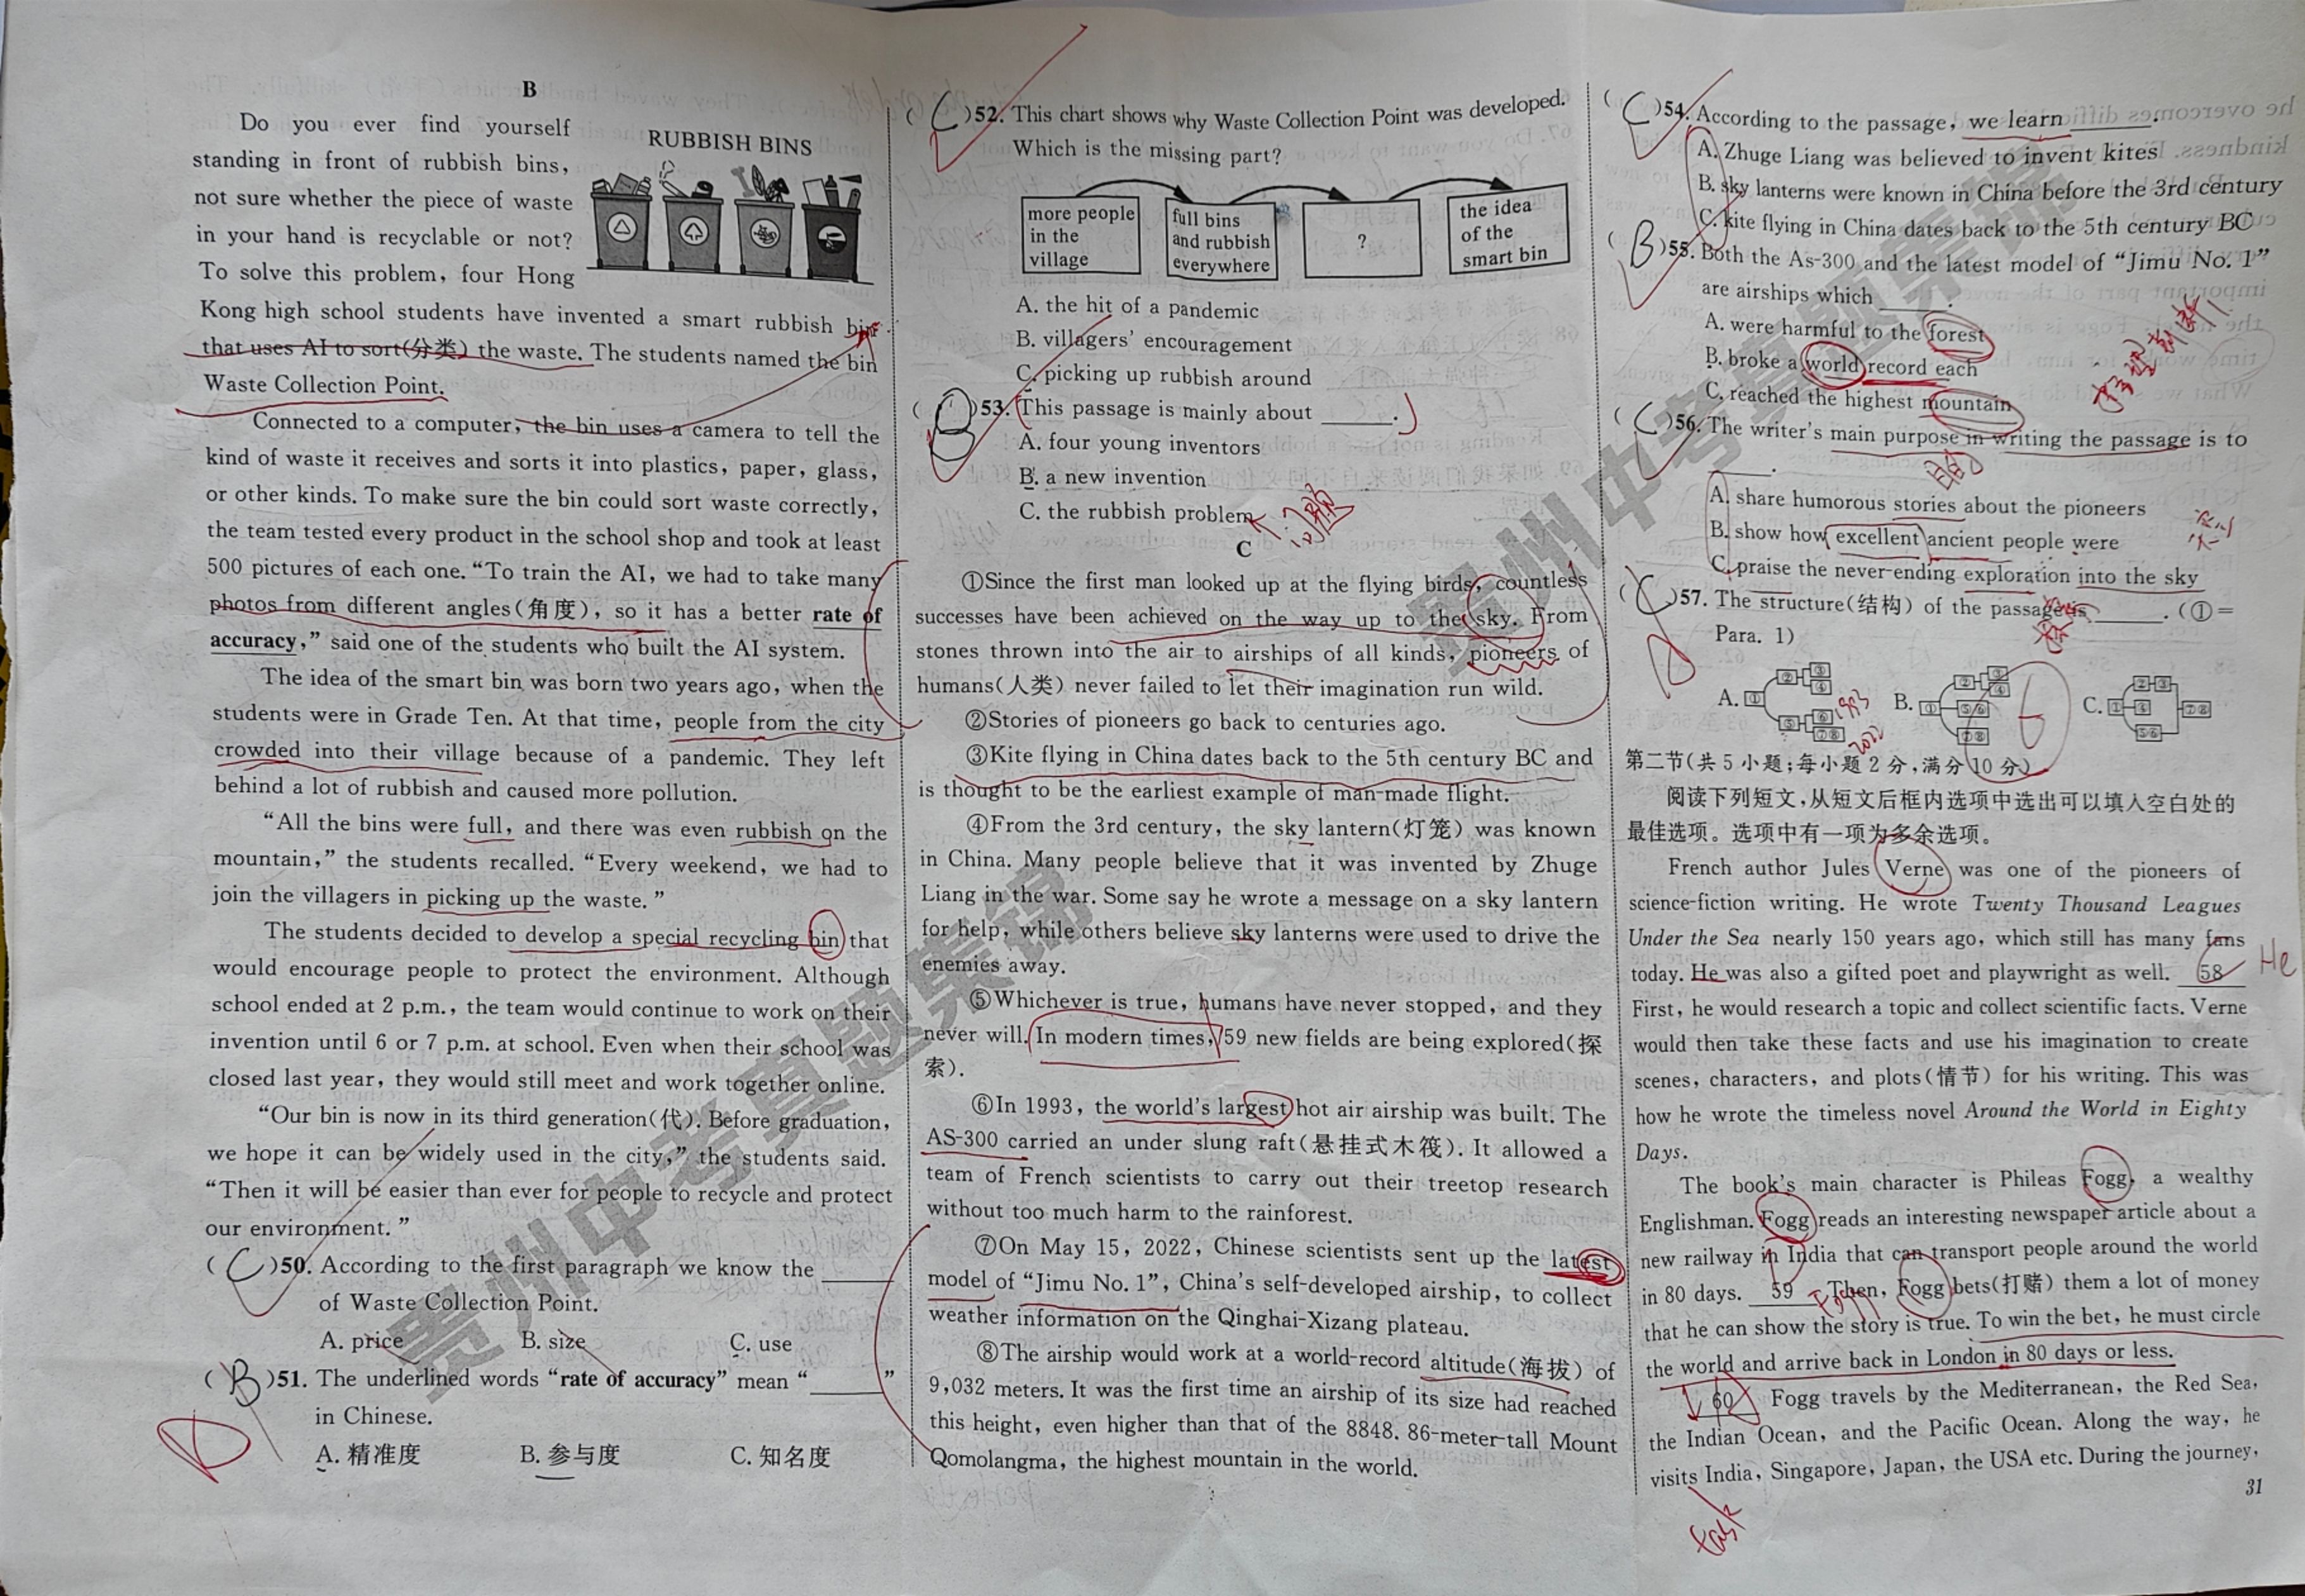 B
Do you ever find yourself
standing in front of rubbish bins,
not sure whether the piece of waste
in your hand is recyclable or not?
To solve this problem, four Hong
RUBBISH BINS
Kong high school students have invented a smart rubbish bin
that uses AI to sort(分类) the waste. The students named the bin
Waste Collection Point.
Connected to a computer, the bin uses a camera to tell the
kind of waste it receives and sorts it into plastics, paper, glass,
or other kinds. To make sure the bin could sort waste correctly,
the team tested every product in the school shop and took at least
500 pictures of each one. “To train the AI, we had to take many
photos from different angles(角度), so it has a better rate of
accuracy,” said one of the students who built the AI system.
The idea of the smart bin was born two years ago, when the
students were in Grade Ten. At that time, people from the city
crowded into their village because of a pandemic. They left
behind a lot of rubbish and caused more pollution.
“All the bins were full, and there was even rubbish on the
mountain,” the students recalled. “Every weekend, we had to
join the villagers in picking up the waste.”
The students decided to develop a special recycling bin that
would encourage people to protect the environment. Although
school ended at 2 p.m., the team would continue to work on their
invention until 6 or 7 p.m. at school. Even when their school was
closed last year, they would still meet and work together online.
“Our bin is now in its third generation(代). Before graduation,
we hope it can be widely used in the city,” the students said.
“Then it will be easier than ever for people to recycle and protect
our environment.”
( C )50. According to the first paragraph we know the ______
of Waste Collection Point.
A. price B. size C. use
( B )51. The underlined words “rate of accuracy” mean “______”
in Chinese.
A. 精准度 B. 参与度 C. 知名度
( C )52. This chart shows why Waste Collection Point was developed.
Which is the missing part?
more people
in the
village
full bins
and rubbish
everywhere
?
the idea
of the
smart bin
A. the hit of a pandemic
B. villagers’ encouragement
C. picking up rubbish around
( B )53. This passage is mainly about ______.
A. four young inventors
B. a new invention
C. the rubbish problem
问题
C
①Since the first man looked up at the flying birds, countless
successes have been achieved on the way up to the sky. From
stones thrown into the air to airships of all kinds, pioneers of
humans(人类) never failed to let their imagination run wild.
②Stories of pioneers go back to centuries ago.
③Kite flying in China dates back to the 5th century BC and
is thought to be the earliest example of man-made flight.
④From the 3rd century, the sky lantern(灯笼) was known
in China. Many people believe that it was invented by Zhuge
Liang in the war. Some say he wrote a message on a sky lantern
for help, while others believe sky lanterns were used to drive the
enemies away.
⑤Whichever is true, humans have never stopped, and they
never will. In modern times, 59 new fields are being explored(探
索).
⑥In 1993, the world’s largest hot air airship was built. The
AS-300 carried an under slung raft(悬挂式木筏). It allowed a
team of French scientists to carry out their treetop research
without too much harm to the rainforest.
⑦On May 15, 2022, Chinese scientists sent up the latest
model of “Jimu No. 1”, China’s self-developed airship, to collect
weather information on the Qinghai-Xizang plateau.
⑧The airship would work at a world-record altitude(海拔) of
9,032 meters. It was the first time an airship of its size had reached
this height, even higher than that of the 8848. 86-meter-tall Mount
Qomolangma, the highest mountain in the world.
( C )54. According to the passage, we learn ______.
A. Zhuge Liang was believed to invent kites
B. sky lanterns were known in China before the 3rd century
C. kite flying in China dates back to the 5th century BC
( B )55. Both the As-300 and the latest model of “Jimu No. 1”
are airships which ______.
A. were harmful to the forest
B. broke a world record each
C. reached the highest mountain
( C )56. The writer’s main purpose in writing the passage is to
______.
目的
A. share humorous stories about the pioneers
B. show how excellent ancient people were
C. praise the never-ending exploration into the sky
( C )57. The structure(结构) of the passage is ______. (①=
Para. 1)
A. ① ② ③ ④ ⑤ ⑥ ⑦⑧ 1993 2022
B. ① ② ③ ④ ⑤⑥ ⑦⑧
C. ① ②③ ④ ⑤⑥ ⑦⑧
第二节(共5小题;每小题2分,满分10分)
阅读下列短文,从短文后框内选项中选出可以填入空白处的
最佳选项。选项中有一项为多余选项。
French author Jules Verne was one of the pioneers of
science-fiction writing. He wrote Twenty Thousand Leagues
Under the Sea nearly 150 years ago, which still has many fans
today. He was also a gifted poet and playwright as well. 58 He
First, he would research a topic and collect scientific facts. Verne
would then take these facts and use his imagination to create
scenes, characters, and plots(情节) for his writing. This was
how he wrote the timeless novel Around the World in Eighty
Days.
The book’s main character is Phileas Fogg, a wealthy
Englishman. Fogg reads an interesting newspaper article about a
new railway in India that can transport people around the world
in 80 days. 59 Then, Fogg bets(打赌) them a lot of money
that he can show the story is true. To win the bet, he must circle
the world and arrive back in London in 80 days or less.
60 Fogg travels by the Mediterranean, the Red Sea,
the Indian Ocean, and the Pacific Ocean. Along the way, he
visits India, Singapore, Japan, the USA etc. During the journey,
task
31
贵州中考真题集锦
贵州中考真题集锦